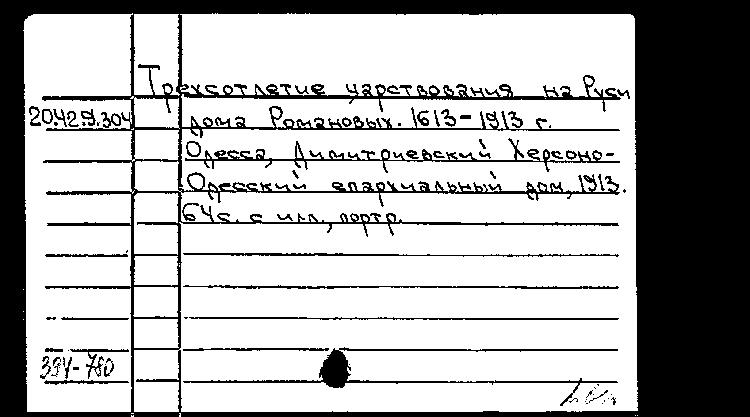 Трехсотлетие царствования на Руси
20.429.304 дома Романовых. 1613-1913 г.
Одесса, Димитриевский Херсоно-
Одесский епархиальный дом, 1913.
64с. с илл., портр.
39У-780